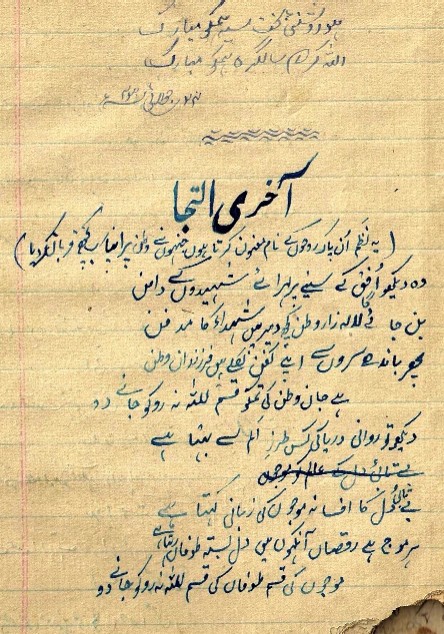 اللہ کرے سالگرہ ہو مبارک
آخری التجا
(یہ نظم اُن پاک روحوں کے نام معنون کرتا ہوں جنہوں نے وطن پر اپنا سب کچھ قربان کر دیا)
وہ دیکھو اُفق کے سینے پر لہرائے شہیدوں کے دامن
بن جائے گا لالہ زار وطن کی شہداء کا مدفن
پھر باندھے سروں سے اپنے کفن نکلے ہیں فرزندانِ وطن
ہے جان وطن کی تم کو قسم للہ نہ روکو جانے دو
دیکھو تو روانی دریا کی کس طرزِ الم سے بہتا ہے
بے تابیٔ دل کا افسانہ موجوں کی زبانی کہتا ہے
ہر موج ہے رقصاں آنکھوں میں دل بستہ طوفاں رہتا ہے
موجوں کی قسم طوفاں کی قسم للہ نہ روکو جانے دو